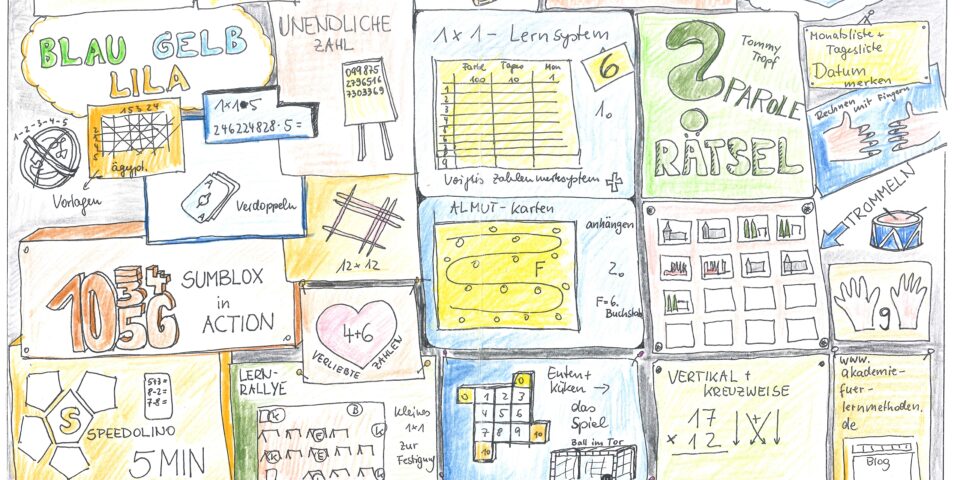 BLAU GELB
LILA
1 5 3 24
ägypt.
1-2-3-4-5
Vorlagen
1x1•5
246224828·5=
Verdoppeln
UNENDLICHE
ZAHL
099875
2796516
7303369
12x12
1x1-Lernsystem
Farbe Tages Mon
100 10 1
1
2
3
4
5
6
7
8
9
6
1.
Voigtis Zahlenmerksystem
?
Tommy
Tropf
PAROLE
RÄTSEL
Monatsliste +
Tagesliste
Datum
merken
Rechnen mit Fingern
TROMMELN
9
ALMUT-Karten
anhängen
F
2.
F=6.
Buchstabe
10 3 4
5 6
SUMBLOX
in
ACTION
4+6
VERLIEBTE ZAHLEN
S
SPEEDOLINO
5 MIN
8-2=
7·8=
LERN-
RALLYE
K B
K E K
E
kleines
1x1
zur
Festigung
0
0 1 2 3
4 5 6
7 8 9 10
10
Enten+
Küken →
das
Spiel
Ball im Tor
VERTIKAL +
KREUZWEISE
17
x 12
www.
akademie-
fuer-
lernmethoden.
de
Blog